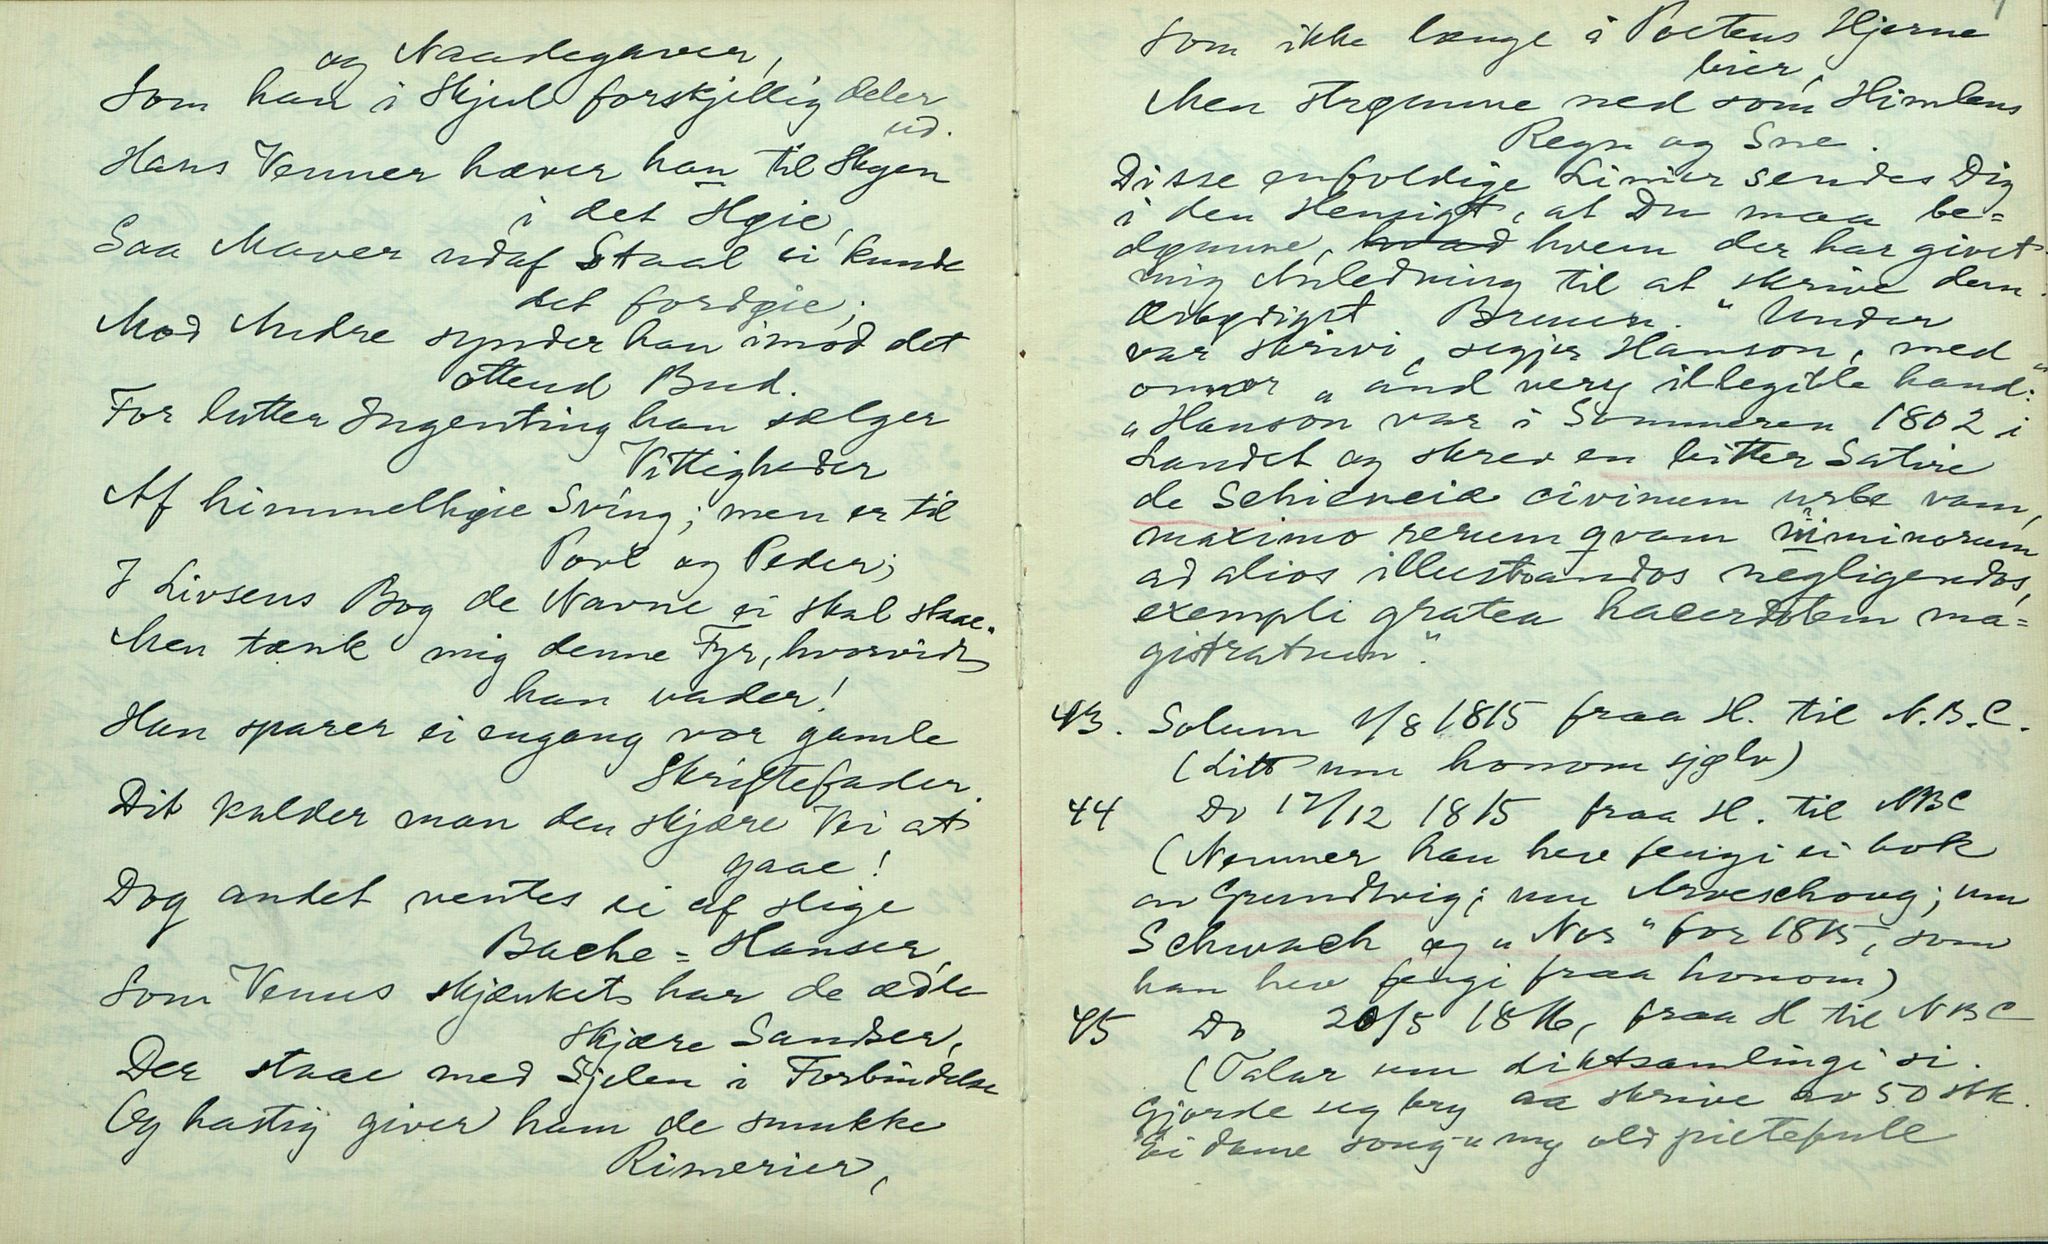 og Naadegaver,
Som han i Skjul forskjellig deler
ud.
Hans Venner hæver han til Skyen
i det Høie,
Saa Maver udaf Staal ei kunde
det fordøie;
Mod Andre synder han imod det
ottend Bud.
For lutter Ingenting han sælger
Vittigheder
Af himmelhøie Sving; men er til
Povl og Peder;
I Livsens Bog de Navne ei skal staae.
Men tænk mig denne Fyr, hvorvidt
han vader!
Han sparer ei engang vor gamle
Skriftefader.
Dit kalder man den skjære Vei at
gaae!
Dog andet ventes ei af slige
Bache-Hanser,
Som Venus skjænket har de ædle
skjære Sandser,
Der staae med Sjelen i Forbindelse
Og hastig giver ham de smukke
Rimerier,
Som ikke længe i Poetens Hjerne
bier,
Men strømme ned som Himlens
Regn og Sne.
Disse enfoldige Linier sendes Dig
i den Hensigt, at Du maa be=
dømme, hvad hvem der har givet
mig Anledning til at skrive dem.
Ærbødigst Bruun." Under
var skrivi, segjer Hanson, med
onnor "and very illegible hand:"
"Hanson var i Sommeren 1802 i
Landet og skrev en bitter Satire
de Schieneia civinum urbe vam,
maximo rerum qvam minorum
ad alios illustrandos negligendos,
exempli gratea ma=
gistratum".
43. Solum 1/8 1815 fraa H. til N.B.C.
(Litt um honom sjølv)
44 Do 17/12 1815 fraa H. til NBC
(Nemner han hev fengi ei bok
av Grundtvig; um Arveschoug; um
Schwach og "Nor" for 1815, som
han hev fengi fraa honom)
45 Do 20/5 1816, fraa H til NBC
(Talar um diktsamlingi si.
Gjorde seg bry aa skrive av 50 stk.
Ei dame song "my old pietefull